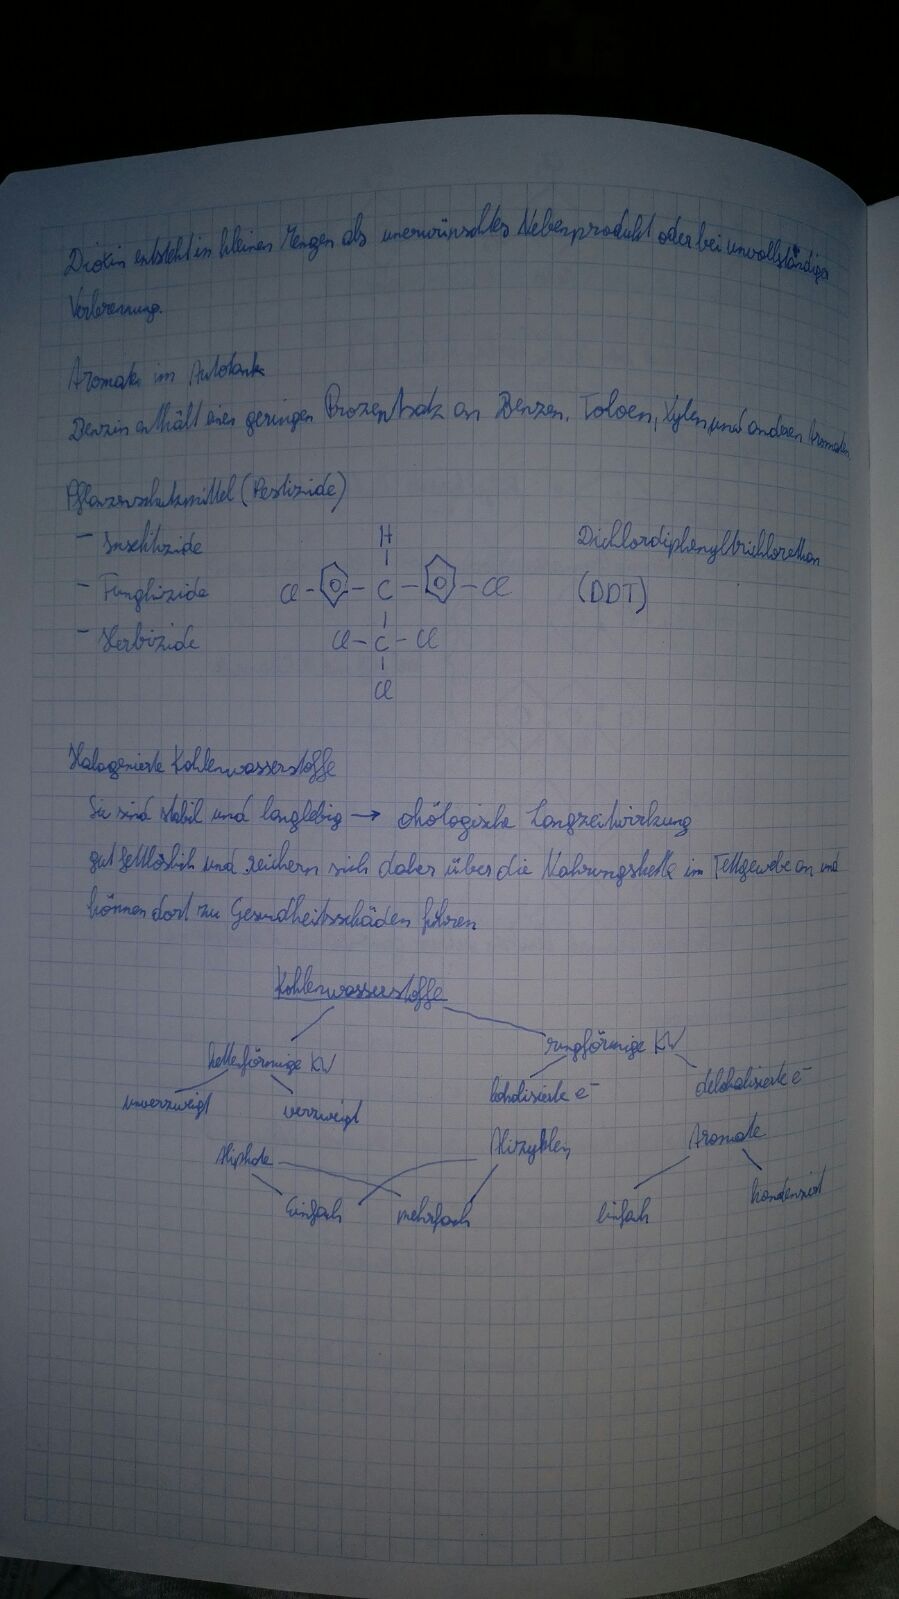 Dioxin entsteht in kleinen Mengen als unerwünschtes Nebenprodukt oder bei unvollständiger
Verbrennung.
Aromate im Autotank
Benzin enthält einen geringen Prozentsatz an Benzen, Toloen, Xylen und anderen Aromaten.
Pflanzenschutzmittel (Pestizide)
- Insektizide
- Funghizide
- Herbizide
H
Cl - C - Cl
Cl - C - Cl
Cl
Dichlordiphenyltrichlorethan
(DDT)
Halogenierte Kohlenwasserstoffe
Sie sind stabil und langlebig → ökologische Langzeitwirkung
gut fettlöslich und reichern sich daher über die Nahrungskette im Fettgewebe an und
können dort zu Gesundheitsschäden führen
Kohlenwasserstoffe
kettenförmige KW ringförmige KW
unverzweigt verzweigt lokalisierte e⁻ delokalisierte e⁻
Aliphate Alizyklen Aromate
Einfach mehrfach einfach kondensiert